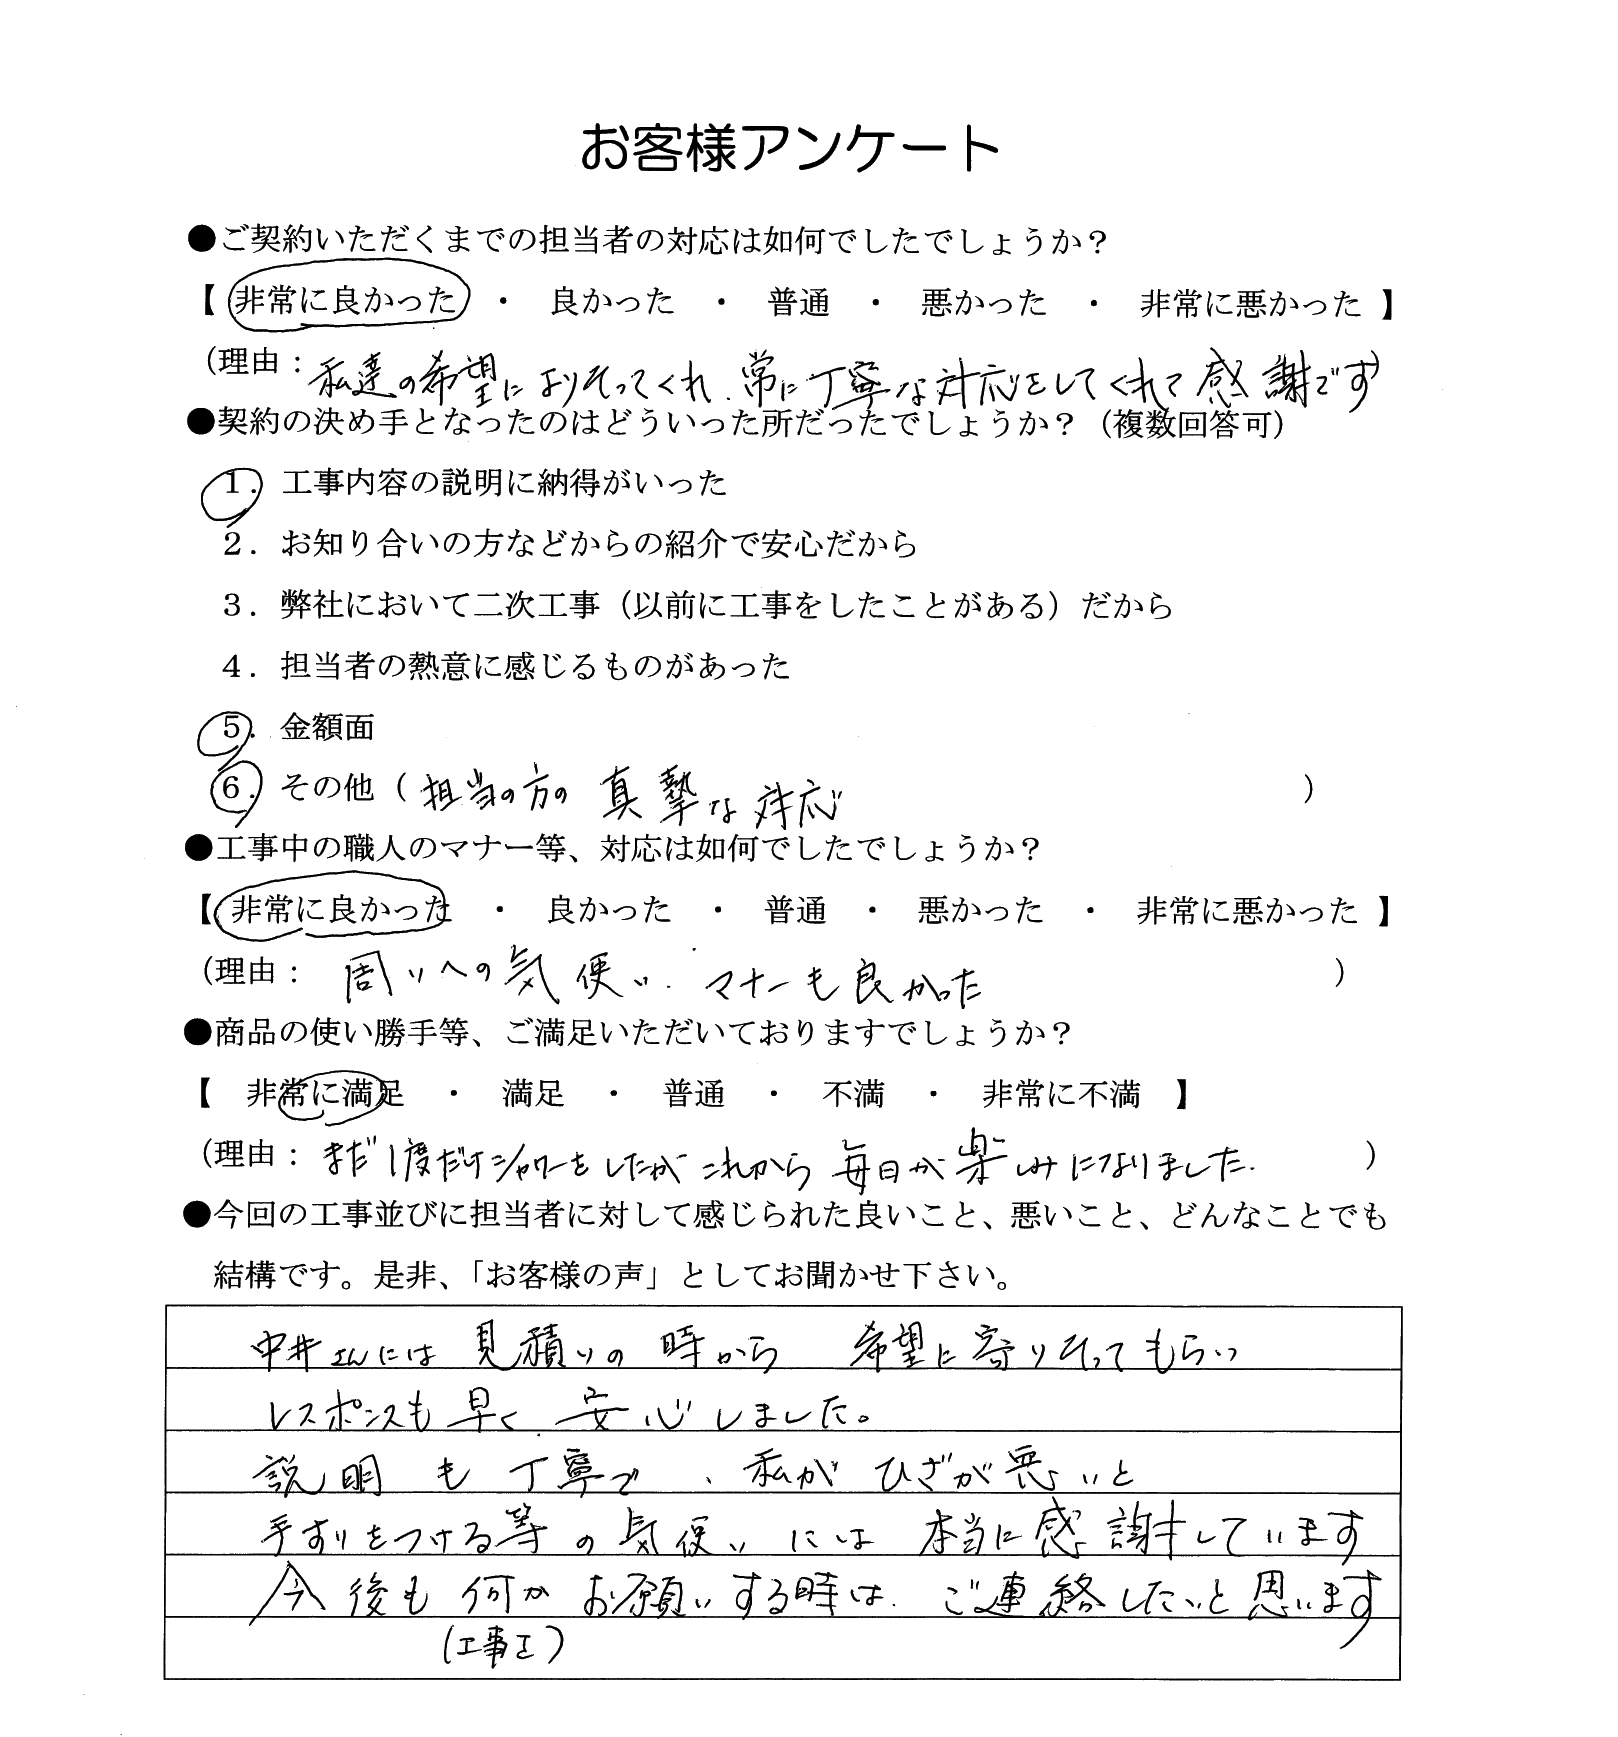 お客様アンケート
●ご契約いただくまでの担当者の対応は如何でしたでしょうか？
【 非常に良かった ・ 良かった ・ 普通 ・ 悪かった ・ 非常に悪かった 】
（理由：私達の希望によりそってくれ、常に丁寧な対応をしてくれて感謝です）
●契約の決め手となったのはどういった所だったでしょうか？（複数回答可）
１．工事内容の説明に納得がいった
２．お知り合いの方などからの紹介で安心だから
３．弊社において二次工事（以前に工事をしたことがある）だから
４．担当者の熱意に感じるものがあった
５．金額面
６．その他（ 担当の方の 真摯な対応 ）
●工事中の職人のマナー等、対応は如何でしたでしょうか？
【 非常に良かった ・ 良かった ・ 普通 ・ 悪かった ・ 非常に悪かった 】
（理由： 周りへの気使い、マナーも良かった ）
●商品の使い勝手等、ご満足いただいておりますでしょうか？
【 非常に満足 ・ 満足 ・ 普通 ・ 不満 ・ 非常に不満 】
（理由： まだ1度だけシャワーをしたがこれから毎日が楽しみになりました. ）
●今回の工事並びに担当者に対して感じられた良いこと、悪いこと、どんなことでも
結構です。是非、「お客様の声」としてお聞かせ下さい。
中井さんには見積りの時から 希望に寄りそってもらい
レスポンスも早く 安心しました。
説明も丁寧で、私がひざが悪いと
手すりをつける等の気使いには 本当に感謝しています
今後も何かお願いする時は、ご連絡したいと思います
（工事を）